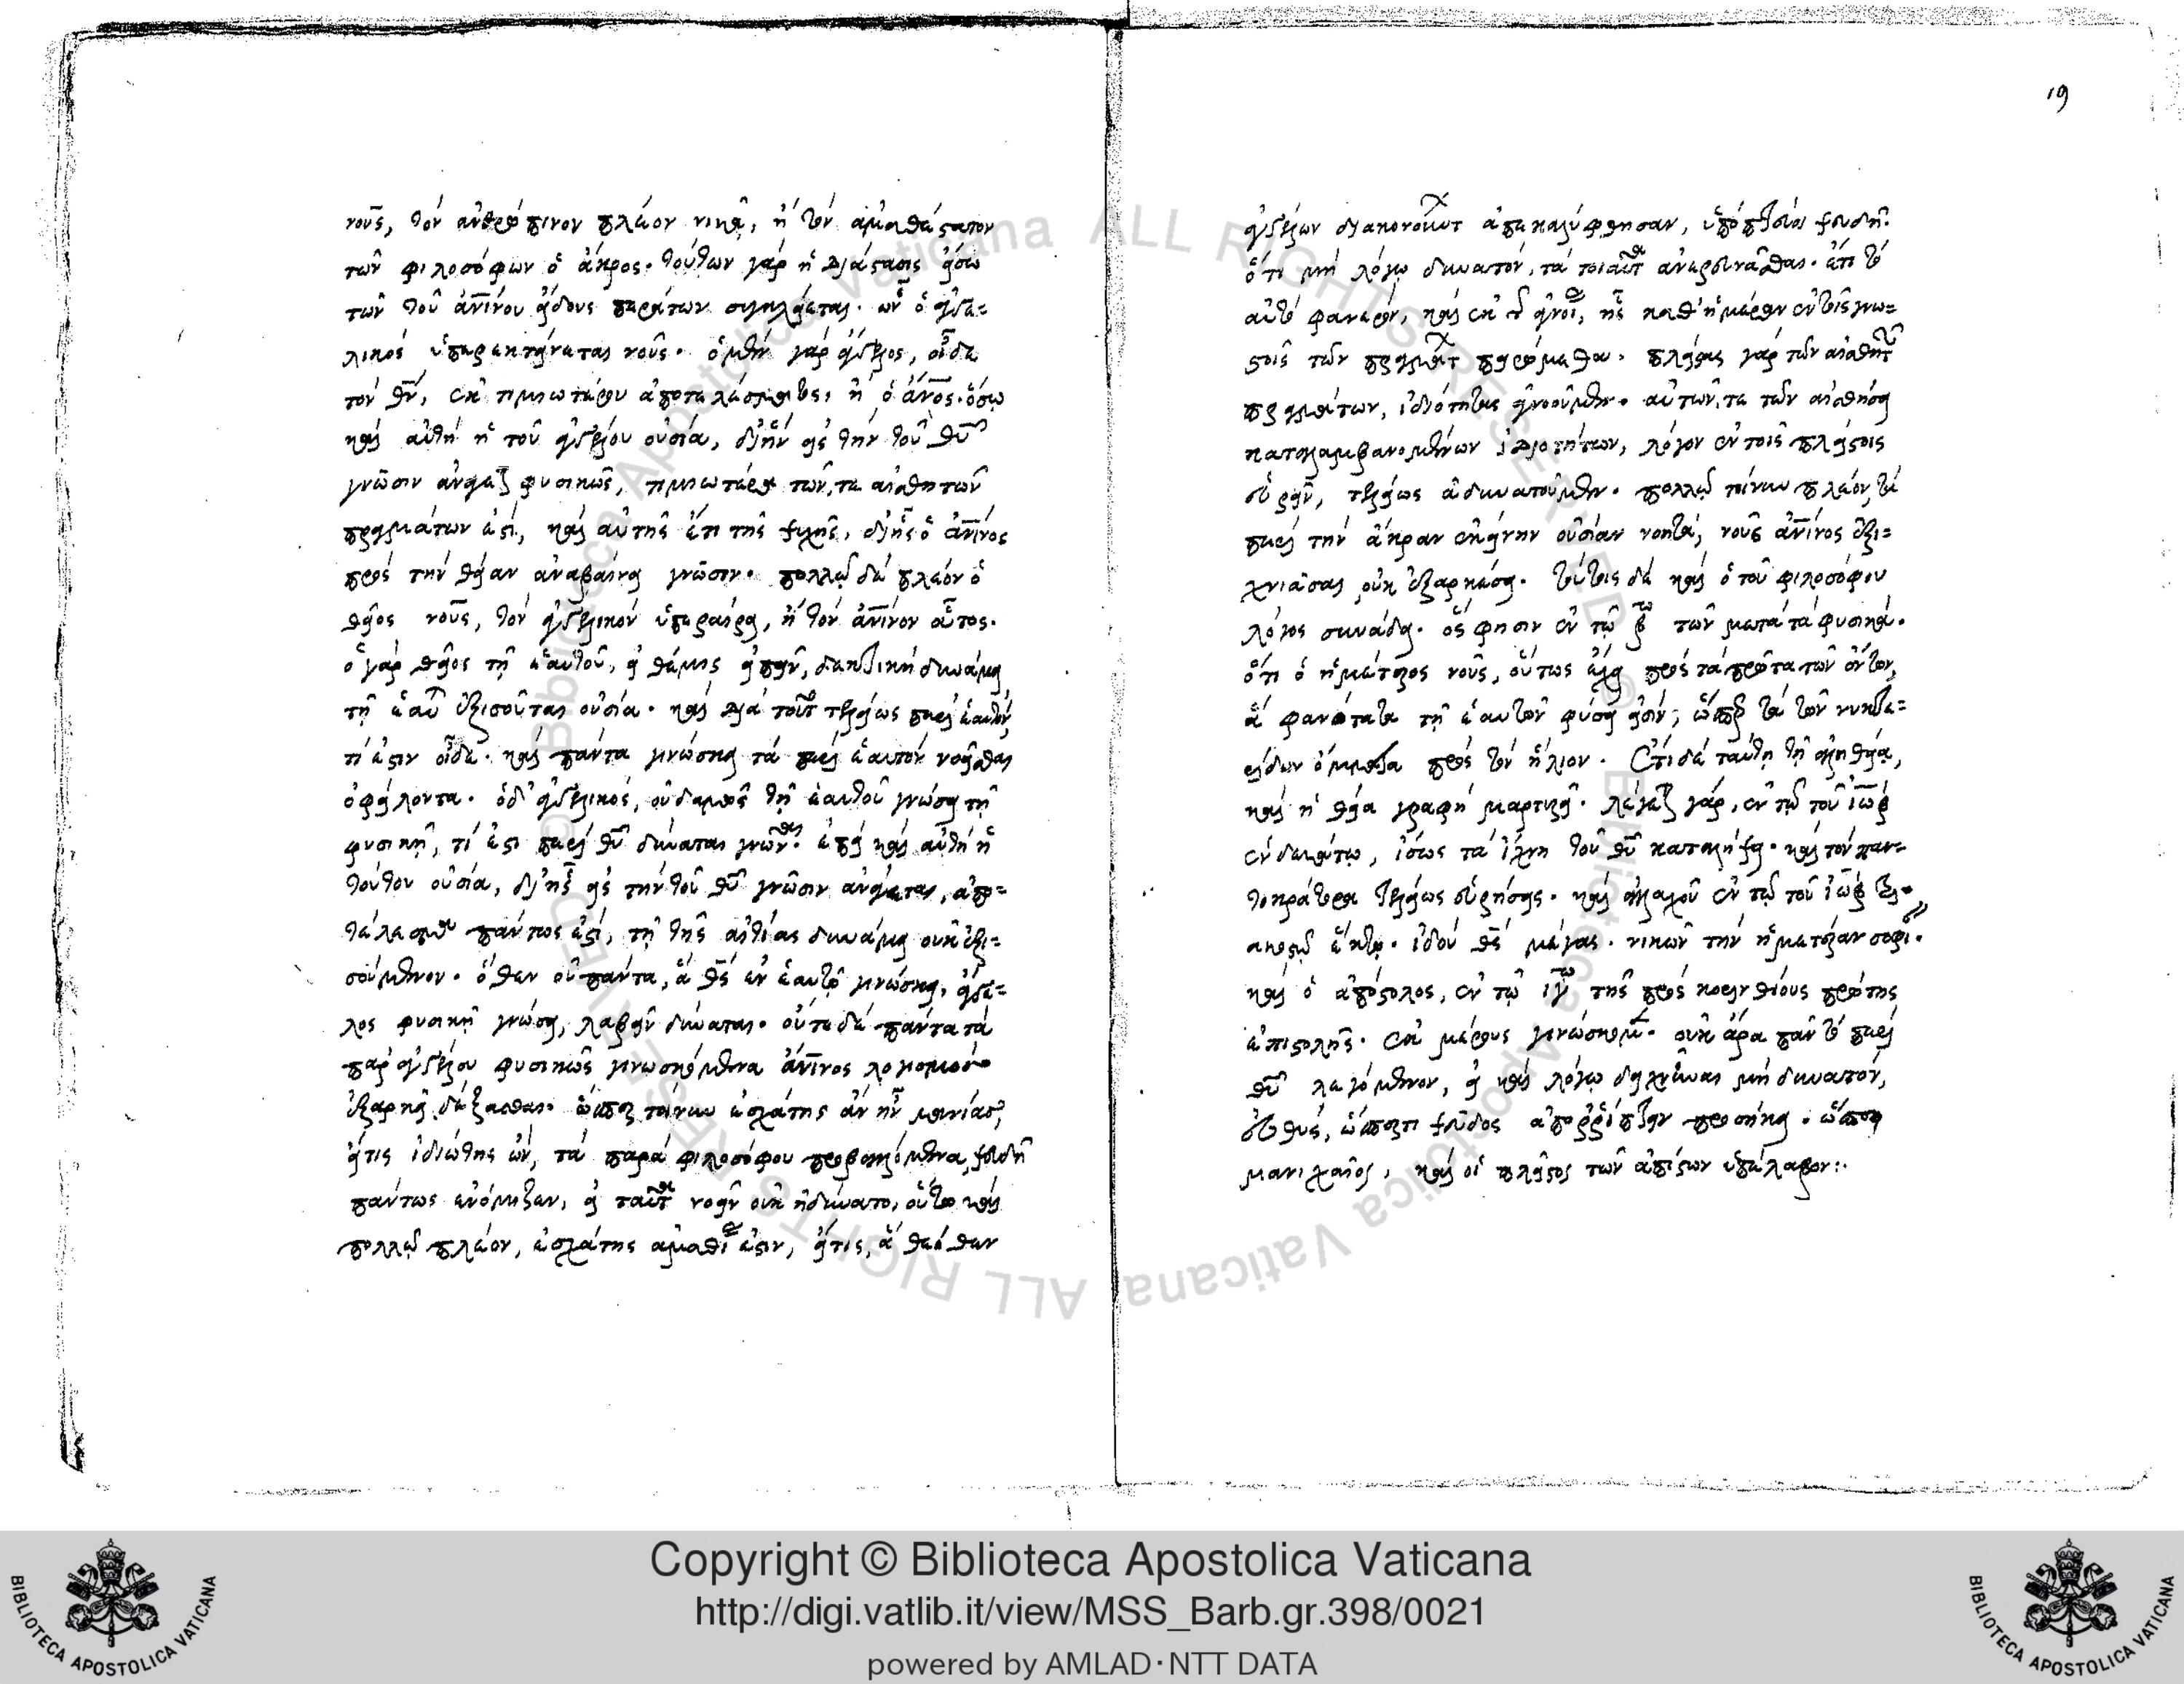 19
νοῦς, τὸν ἀνθρώπινον πλέον νικᾷ, ἢ τὸν ἀμαθέστατον
τῶν φιλοσόφων ὁ ἄκρος. τούτων γὰρ ἡ διάστασις εἴσω
τῶν τοῦ ἀν̅ίνου εἴδους περάτων συγκλείεται. ὧν ὁ ἀγγε=
λικὸς ὑπερεκτείνεται νοῦς. ὁ μὲν γὰρ ἄγγελος, οἶδε
τὸν θν̅, ἐκ τιμιωτέρου ἀποτελέσματος, ἢ ὁ ἄν̅ος. ὅσῳ
καὶ αὐτὴ ἡ τοῦ ἀγγέλου οὐσία, δι' ἧς εἰς τὴν τοῦ θυ̅
γνῶσιν ἀνάγεται φυσικῶς, τιμιωτέρα τῶν, τε αἰσθητῶν
πραγμάτων ἐστί, καὶ αὐτῆς ἔτι τῆς ψυχῆς, δι' ἧς ὁ ἀν̅ινος
πρὸς τὴν θείαν ἀναβαίνει γνῶσιν. πολλῷ δὲ πλέον ὁ
θεῖος νοῦς, τὸν ἀγγελικὸν ὑπεραίρει, ἢ τὸν ἀν̅ινον οὗτος.
ὁ γὰρ θεῖος τῇ ἑαυτοῦ, εἰ θέμις εἰπεῖν, δεκτικῇ δυνάμει
τῇ ἑαυτοῦ ἐξισοῦται οὐσίᾳ. καὶ διὰ τοῦτο τελείως περὶ ἑαυτοῦ,
τί ἐστιν οἶδε. καὶ πάντα γινώσκει τὰ περὶ ἑαυτὸν νοεῖσθαι
ὀφείλοντα. ὁ δ' ἀγγελικὸς, οὐδαμῶς τῇ ἑαυτοῦ γνώσει τῇ
φυσικῇ, τί ἐστι περὶ θυ̅ δύναται γνῶναι. ἐπεὶ καὶ αὐτὴ ἡ
τούτου οὐσία, δι' ἧς εἰς τὴν τοῦ θυ̅ γνῶσιν ἀνάγεται, ἀπο=
τέλεσμα πάντως ἐστί, τῇ τῆς αἰτίας δυνάμει οὐκ ἐξι=
σούμενον. ὅθεν οὐ πάντα, ἃ θς̅ ἐν ἑαυτῷ γινώσκει, ἄγγε=
λος φυσικῇ γνώσει, λαβεῖν δύναται. οὔτε δὲ πάντα τὰ
παρ' ἀγγέλου φυσικῶς γινωσκόμενα ἀν̅ινος λογισμὸς
ἐξαρκεῖ δέξασθαι. ὥσπερ τοίνυν ἐσχάτης ἂν ἦν μανίας,
εἴτις ἰδιώτης ὢν, τὰ παρὰ φιλοσόφου προβαλλόμενα, ψευδῆ
πάντως ἐνόμιζεν, εἰ ταῦτα νοεῖν οὐκ ἠδύνατο, οὕτω καὶ
πολλῷ πλέον, ἐσχάτης ἀμαθίας ἐστιν, εἴτις, ἃ θεόθεν
ἀγγέλων διακονούντων ἀπεκαλύφθησαν, ὑποπτεύει ψευδῆ.
ὅτι μὴ λόγῳ δυνατὸν, τὰ τοιαῦτα ἀνερευνᾶσθαι. ἔτι τὸ
αὐτὸ φανερὸν, καὶ ἐκ τῆς ἀγνοίας, ἧς καθ' ἡμέραν ἐν τοῖς γνω=
στοῖς τῶν πραγμάτων πειρώμεθα. πλείστας γὰρ τῶν αἰσθητῶν
πραγμάτων, ἰδιότητας ἀγνοοῦμεν. αὐτῶν, τε τῶν αἰσθήσει
καταλαμβανομένων ἰδιοτήτων, λόγον ἐν τοῖς πλείστοις
εὑρεῖν, τελείως ἀδυνατοῦμεν. πολλῷ τοίνυν πλέον, τὰ
περὶ τὴν ἄκραν ἐκείνην οὐσίαν νοητά, νοῦς ἀν̅ινος ἐξι=
χνιᾶσαι οὐκ ἐξαρκέσει. τούτοις δὲ καὶ ὁ τοῦ φιλοσόφου
λόγος συνάδει. ὅς φησιν ἐν τῷ β τῶν μετὰ τὰ φυσικά.
ὅτι ὁ ἡμέτερος νοῦς, οὕτως ἔχει πρὸς τὰ πρῶτα τῶν ὄντων,
ἃ φανότατα τῇ ἑαυτῶν φύσει εἰσίν, ὥσπερ τὰ τῶν νυκτε=
ρίδων ὄμματα πρὸς τὸν ἥλιον. Ἔτι δὲ ταύτῃ τῇ ἀληθείᾳ,
καὶ ἡ θεία γραφὴ μαρτυρεῖ. λέγεται γάρ, ἐν τῷ τοῦ ἰὼβ
ἑνδεκάτῳ, ἴσως τὰ ἴχνη τοῦ θυ̅ καταλήψῃ. καὶ τὸν παν=
τοκράτορα τελείως εὑρήσεις. καὶ ἀλλαχοῦ ἐν τῷ τοῦ ἰὼβ τρι=
ακοστῷ ἕκτῳ. ἰδοὺ θς̅ μέγας. νικῶν τὴν ἡμετέραν σοφίαν.
καὶ ὁ ἀπόστολος, ἐν τῷ ιγ τῆς πρὸς κορινθίους πρώτης
ἐπιστολῆς. ἐκ μέρους γινώσκομεν. οὐκ ἄρα πᾶν τὸ περὶ
θυ̅ λεγόμενον, εἰ καὶ λόγῳ δειχθῆναι μὴ δυνατόν,
εὐθὺς, ὥσπερτι ψεῦδος ἀπορρίπτειν προσήκει. ὥσπερ
μανιχαῖος, καὶ οἱ πλεῖστοι τῶν ἀπίστων ὑπέλαβον:.
Copyright © Biblioteca Apostolica Vaticana
http://digi.vatlib.it/view/MSS_Barb.gr.398/0021
powered by AMLAD·NTT DATA
BIBLIOTECA APOSTOLICA VATICANA
BIBLIOTECA APOSTOLICA VATICANA